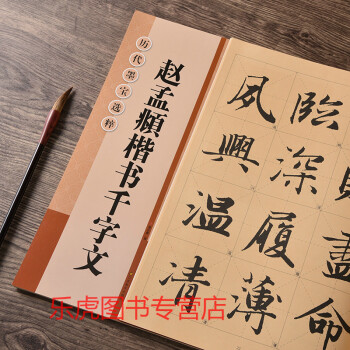 历代墨宝选粹
赵孟頫楷书千字文
臨深履薄
夙興温凊
盡命
乐虎图书专营店